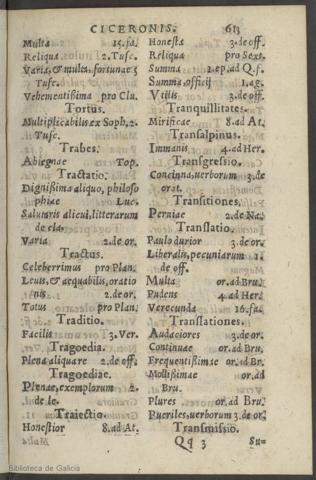 CICERONIS. 613
Multa 15.fa.
Reliqua 2.Tusc.
Varia, & multa, fortunae 5
Tusc.
Vehementißima pro Clu.
Tortus.
Multiplicabilis ex Soph, 2.
Tusc.
Trabes.
Abiegnae Top.
Tractatio.
Dignißima aliquo, philoso
phiae Luc.
Salutaris alicui, litterarum
de cla.
Varia 2.de or.
Tractus.
Celeberrimus pro Plan.
Leuis, & aequabilis, oratio
nis 2.de or.
Totus pro Plan.
Traditio.
Facilis 3.Ver.
Tragoedia.
Plena aliquare 2.de off.
Tragoediae.
Plenae, exemplorum 2.
de le.
Traiectio.
Honestior 8.ad At.
Honesta 3.de off.
Reliqua pro Sext.
Summa 2.ep.ad Q.f.
Summa, officij 1.ag.
Vtilis 3.de off.
Tranquillitates.
Mirificae 8.ad At.
Transalpinus.
Immanis 4.ad Her.
Transgressio.
Concinna, uerborum 3.de
orat.
Transitiones.
Perniae 2.de Na.
Translatio.
Paulo durior 3.de or.
Liberalis, pecuniarum 1.
de off.
Multa or.ad Bru.
Pudens 4.ad Her.
Verecunda 16.fa.
Translationes.
Audaciores 3.de or.
Continuae or.ad Bru.
Frequentißimae or.ad Br.
Mollißimae or.ad
Bru.
Plures or.ad Bru.
Pueriles, uerborum 3.de or.
Transmissio.
Qq 3 Su=
Biblioteca de Galicia